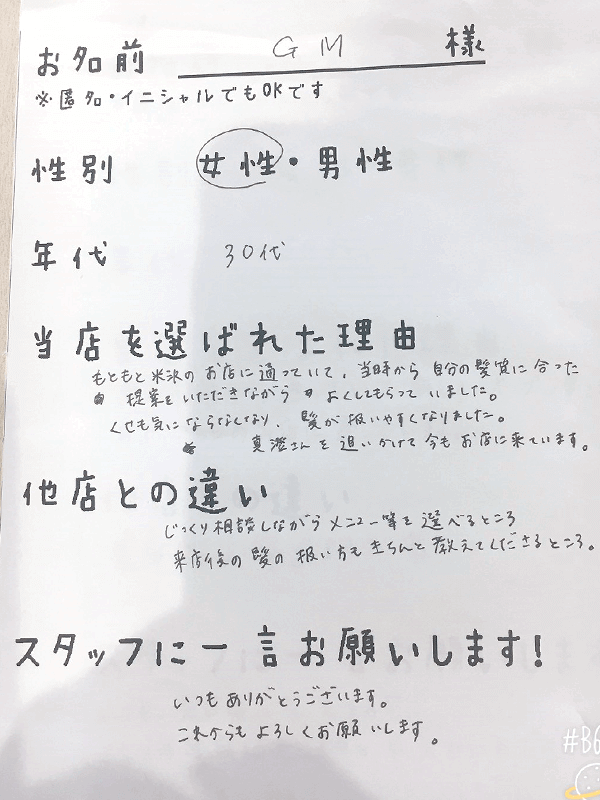 お名前 GM 様
※匿名・イニシャルでもOKです
性別 女性・男性
年代 30代
当店を選ばれた理由
もともと米沢のお店に通っていて、当時から自分の髪質に合った
提案をいただきながらよくしてもらっていました。
くせも気にならなくなり、髪が扱いやすくなりました。
真澄さんを追いかけて今もお店に来ています。
他店との違い
じっくり相談しながらメニュー等を選べるところ
来店後の髪の扱い方もきちんと教えてくださるところ。
スタッフに一言お願いします!
いつもありがとうございます。
これからもよろしくお願いします。